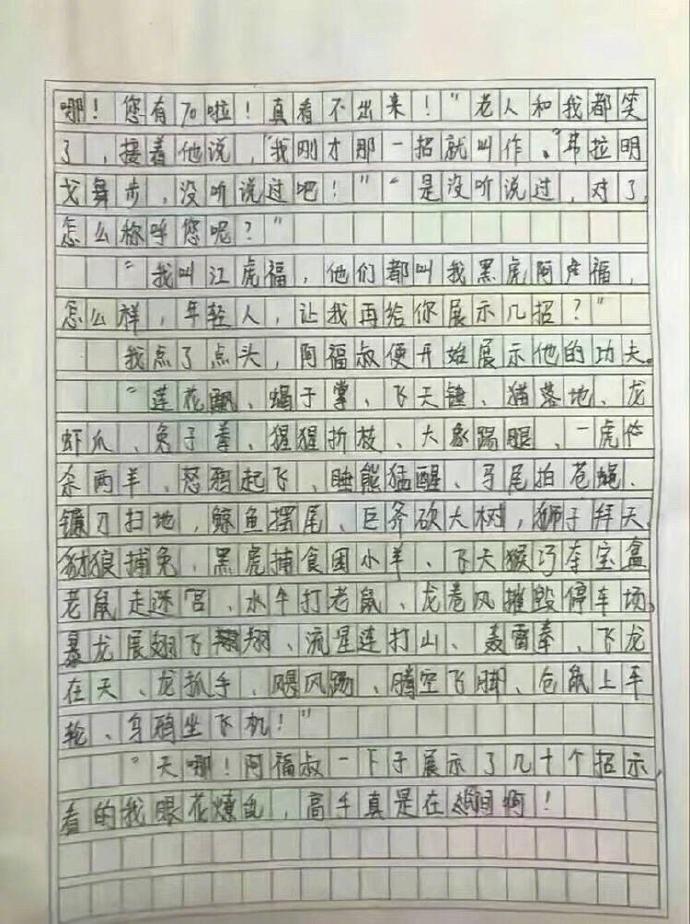 哪！您有70啦！真看不出来！”老人和我都笑
了，接着他说，“我刚才那一招就叫作、“弗拉明
戈舞步，没听说过吧！”“是没听说过，对了，
怎么称呼您呢？”
“我叫江虎福，他们都叫我黑虎阿福，
怎么祥，年轻人，让我再给你展示几招？”
我点了点头，阿福叔便开始展示他的功夫。
“莲花飘、蝎子掌、飞天锤、猫落地、龙
虾爪、兔子拳、猩猩折枝、大象踢腿、一虎
杀两羊、怒鸦起飞、睡熊猛醒、马尾拍苍蝇、
镰刀扫地，鲸鱼摆尾、巨斧砍大树，狮子拜天、
豺狼捕兔、黑虎捕食围小羊、飞天猴巧夺宝盒
老鼠走迷宫、水牛打老鼠、龙卷风摧毁停车场、
暴龙展翅飞翔、流星连打山、轰雷拳、飞龙
在天、龙抓手、飓风踢、腾空飞脚、仓鼠上车
轮、乌鸦坐飞机！”
“天哪！阿福叔一下子展示了几十个招示，
看的我眼花燎乱，高手真是在啊！